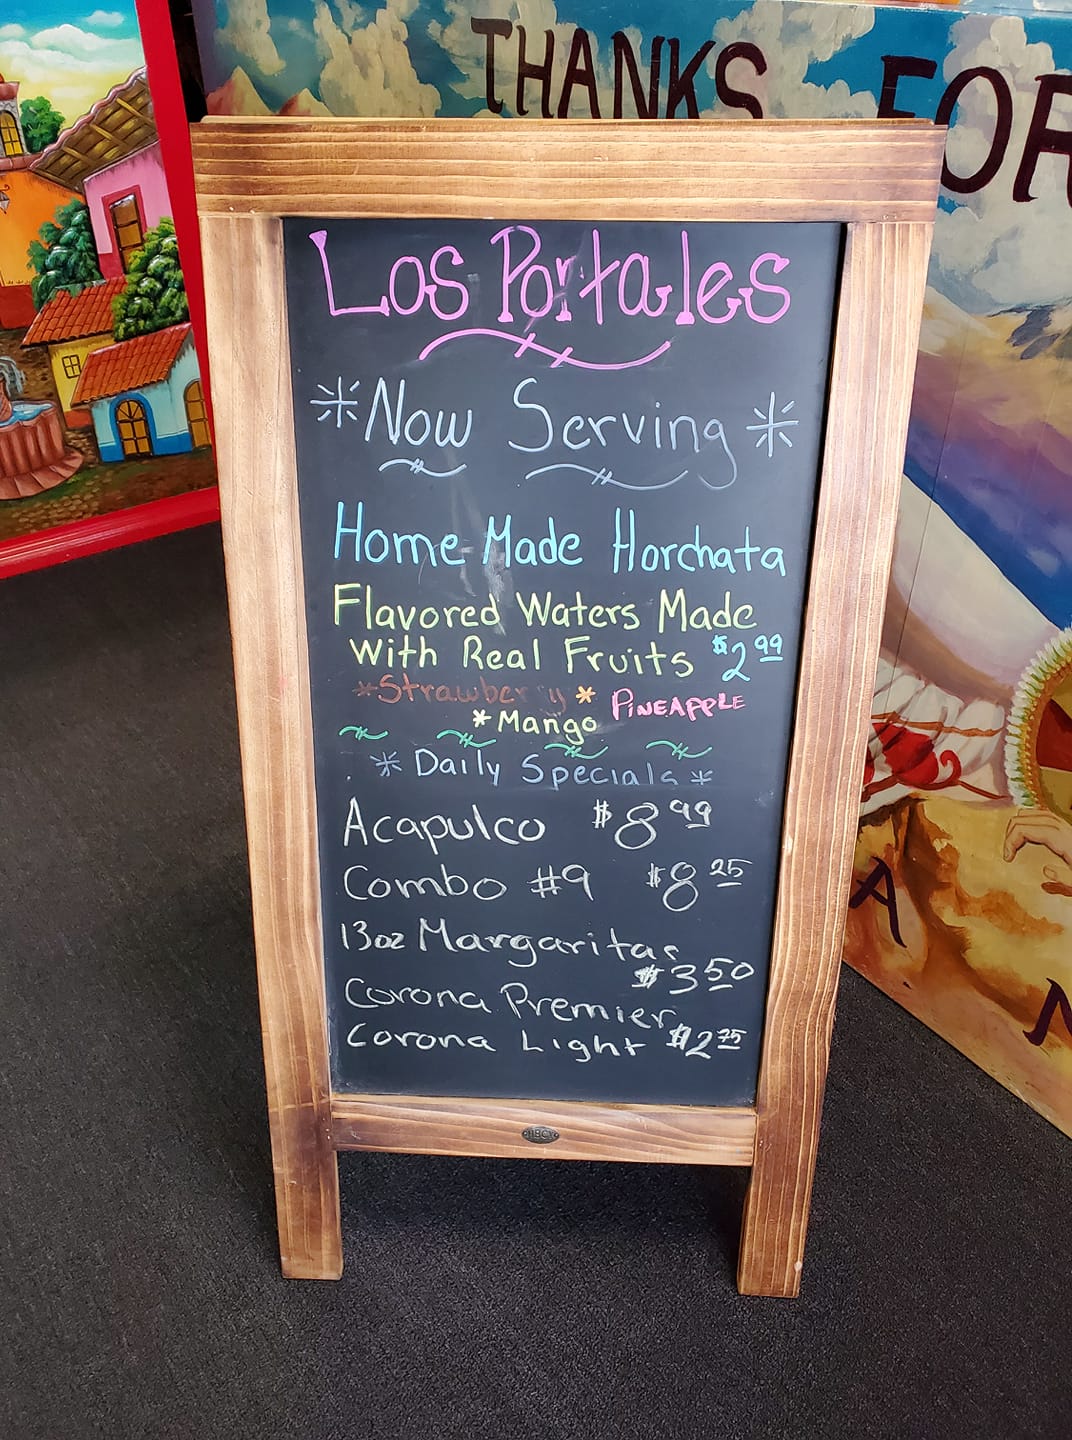 THANKS FOR
Los Portales
*Now Serving*
Home Made Horchata
Flavored Waters Made
with Real Fruits $2.99
*Strawberry* PINEAPPLE
*Mango
*Daily Specials*
Acapulco $8.99
Combo #9 $8.25
13oz Margaritas
$3.50
Corona Premier
Corona Light $2.75
A